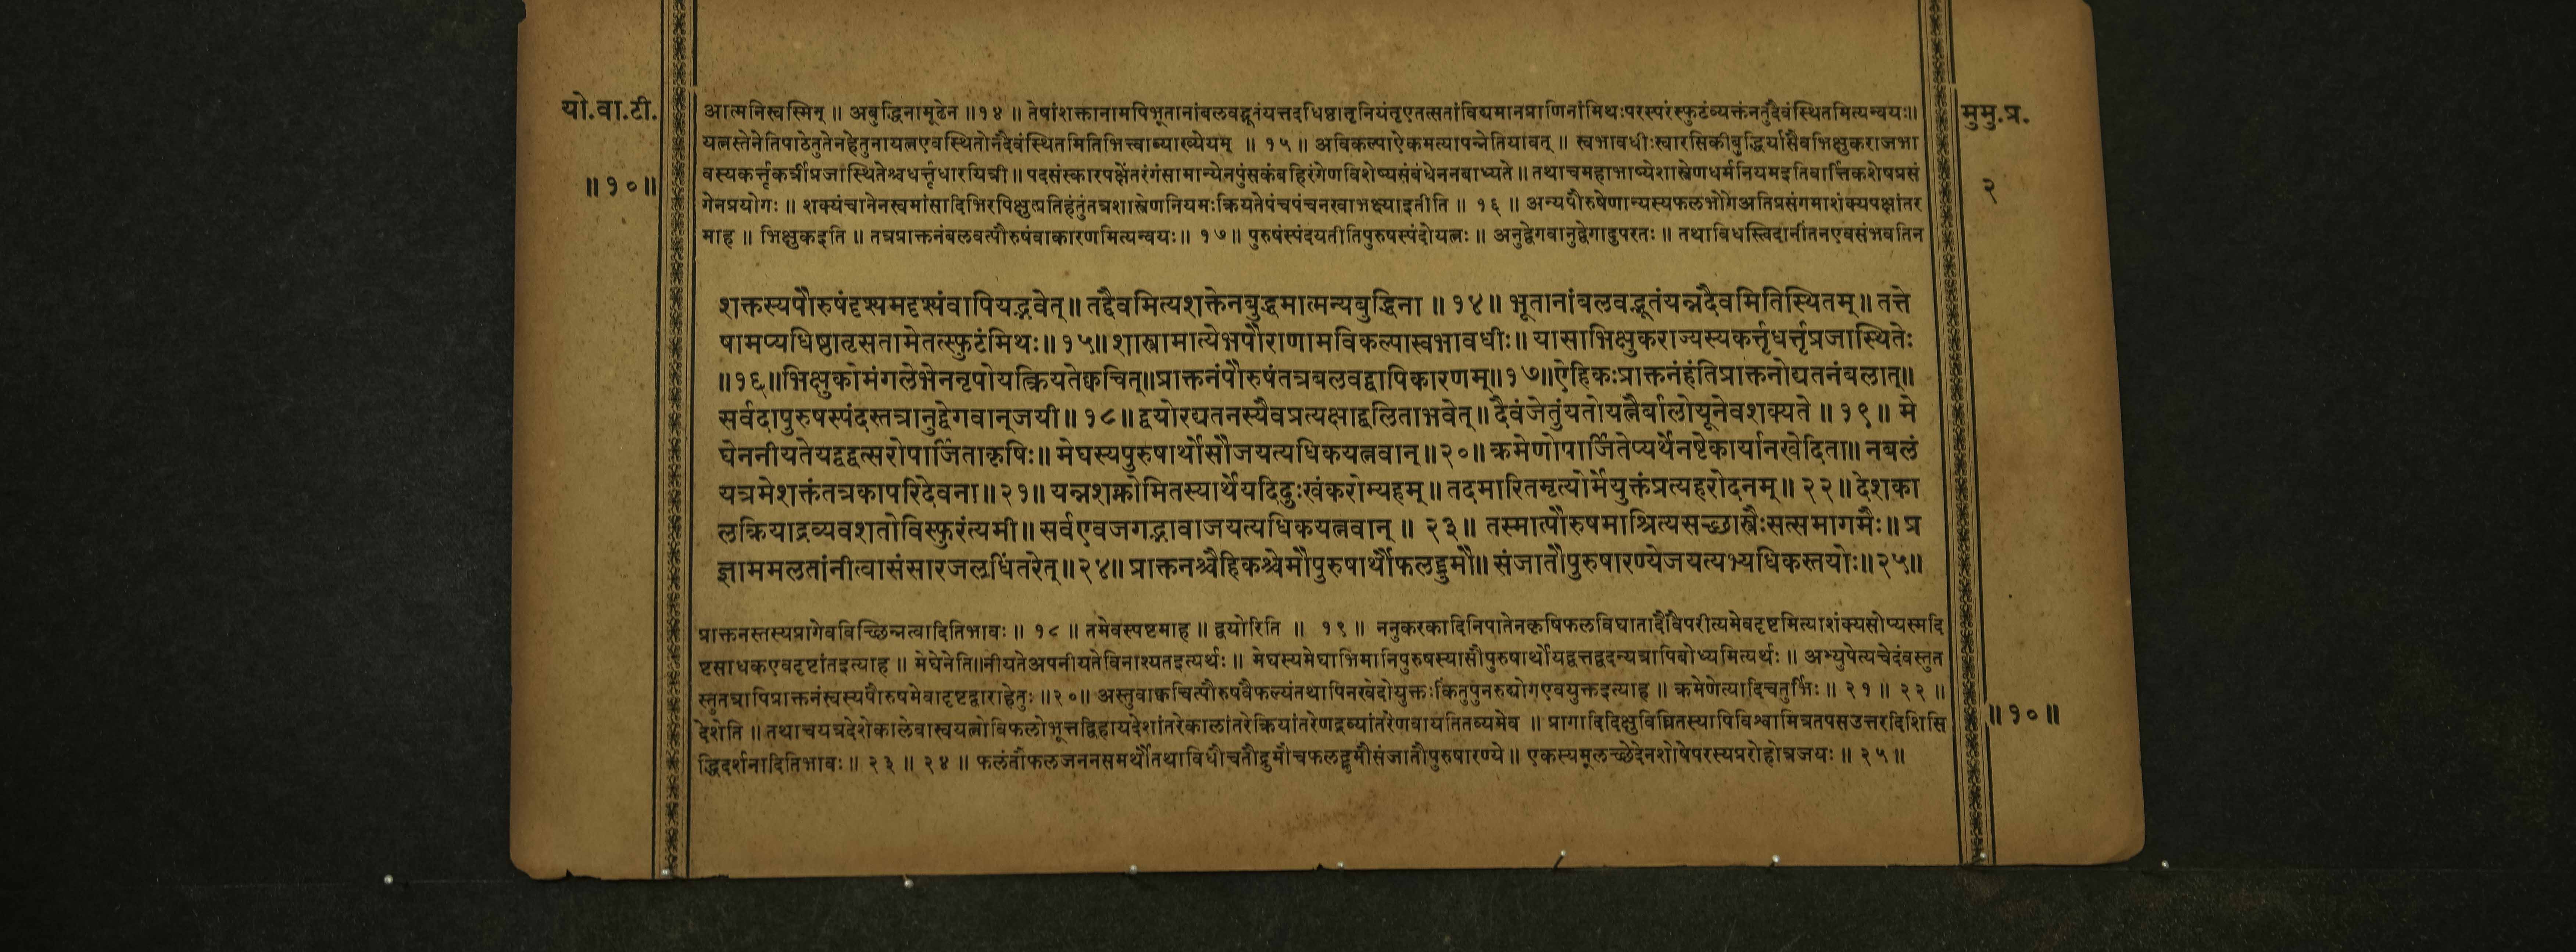 यो.वा.टी.
॥१०॥
मुमु.प्र.
२
आत्मनिस्वस्मिन् ॥ अबुद्धिनामूढेन ॥१४ ॥ तेषांशक्तानामपिभूतानांबलवद्भूतंयत्तदधिष्ठातृनियंतृएतत्सतांविद्यमानप्राणिनांमिथःपरस्परंस्फुटंव्यक्तंनतुदैवंस्थितमित्यन्वयः॥
यत्नस्तेनेतिपाठेतुतेनहेतुनायत्नएवस्थितोनदैवंस्थितमितिभित्त्वाव्याख्येयम् ॥ १५ ॥ अविकल्पाऐकमत्यापन्नेतियावत् ॥ स्वभावधीःस्वारसिकीबुद्धिर्यासैवभिक्षुकराजभा
वस्यकर्त्तृकर्त्रीप्रजास्थितेश्चधर्त्तृधारयित्री ॥ पदसंस्कारपक्षेंतरंगंसामान्येनपुंसकंबहिरंगेणविशेष्यसंबंधेननबाध्यते ॥ तथाचमहाभाष्येशास्त्रेणधर्मनियमइतिवार्त्तिकशेषप्रसं
गेनप्रयोगः ॥ शक्यंचानेनस्वमांसादिभिरपिक्षुत्प्रतिहंतुंतत्रशास्त्रेणनियमःक्रियतेपंचपंचनखाभक्ष्याइतीति ॥ १६ ॥ अन्यपौरुषेणान्यस्यफलभोगेअतिप्रसंगमाशंक्यपक्षांतर
माह ॥ भिक्षुकइति ॥ तत्रप्राक्तनंबलवत्पौरुषंवाकारणमित्यन्वयः॥ १७॥ पुरुषंस्पंदयतीतिपुरुषस्पंदोयत्नः ॥ अनुद्वेगवानुद्वेगादुपरतः ॥ तथाविधस्त्विदानींतनएवसंभवतिन
शक्तस्यपौरुषंदृश्यमदृश्यंवापियद्भवेत्॥ तद्दैवमित्यशक्तेनबुद्धमात्मन्यबुद्धिना ॥ १४॥ भूतानांबलवद्भूतंयन्नदैवमितिस्थितम्॥ तत्ते
षामप्यधिष्ठातृसतामेतत्स्फुटंमिथः॥१५॥शास्त्रामात्येभपौराणामविकल्पास्वभावधीः॥ यासाभिक्षुकराज्यस्यकर्त्तृधर्त्तृप्रजास्थितेः
॥१६॥भिक्षुकोमंगलेभेननृपोयत्क्रियतेक्वचित्॥प्राक्तनंपौरुषंतत्रबलवद्वापिकारणम्॥१७॥ऐहिकःप्राक्तनंहंतिप्राक्तनोद्यतनंबलात्॥
सर्वदापुरुषस्पंदस्तत्रानुद्वेगवान्जयी॥ १८॥ द्वयोरद्यतनस्यैवप्रत्यक्षाद्बलिताभवेत्॥ दैवंजेतुंयतोयत्नैर्बालोयूनेवशक्यते ॥ १९॥ मे
घेननीयतेयद्वद्वत्सरोपार्जिताकृषिः॥ मेघस्यपुरुषार्थोसौजयत्यधिकयत्नवान्॥२०॥ क्रमेणोपार्जितेप्यर्थेनष्टेकार्यानखेदिता॥ नबलं
यत्रमेशक्तंतत्रकापरिदेवना॥२१॥ यन्नशक्नोमितस्यार्थेयदिदुःखंकरोम्यहम्॥ तदमारितमृत्योर्मेयुक्तंप्रत्यहरोदनम्॥ २२॥ देशका
लक्रियाद्रव्यवशतोविस्फुरंत्यमी॥ सर्वएवजगद्भावाजयत्यधिकयत्नवान् ॥ २३॥ तस्मात्पौरुषमाश्रित्यसच्छास्त्रैःसत्समागमैः॥ प्र
ज्ञाममलतांनीत्वासंसारजलधिंतरेत्॥२४॥ प्राक्तनश्चैहिकश्चेमौपुरुषार्थौफलद्रुमौ॥ संजातौपुरुषारण्येजयत्यभ्यधिकस्तयोः॥२५॥
प्राक्तनस्तस्यप्रागेवविच्छिन्नत्वादितिभावः ॥ १८ ॥ तमेवस्पष्टमाह ॥ द्वयोरिति ॥ १९ ॥ ननुकरकादिनिपातेनकृषिफलविघातादैवैपरीत्यमेवदृष्टमित्याशंक्यसोप्यस्मदि
ष्टसाधकएवदृष्टांतइत्याह ॥ मेघेनेति॥नीयतेअपनीयतेविनाश्यतइत्यर्थः ॥ मेघस्यमेघाभिमानिपुरुषस्यासौपुरुषार्थोयद्वत्तद्वदन्यत्रापिबोध्यमित्यर्थः ॥ अभ्युपेत्यचेदंवस्तुत
स्तुतत्रापिप्राक्तनंस्वस्यपौरुषमेवादृष्टद्वाराहेतुः ॥२०॥ अस्तुवाक्वचित्पौरुषवैफल्यंतथापिनखेदोयुक्तःकिंतुपुनरुद्योगएवयुक्तइत्याह ॥ क्रमेणेत्यादिचतुर्भिः ॥ २१ ॥ २२ ॥
देशेति ॥ तथाचयत्रदेशेकालेवास्वयत्नोविफलोभूत्तद्विहायदेशांतरेकालांतरेक्रियांतरेणद्रव्यांतरेणवायतितव्यमेव ॥ प्रागादिदिक्षुविघ्नितस्यापिविश्वामित्रतपसउत्तरदिशिसि
द्धिदर्शनादितिभावः ॥ २३ ॥ २४ ॥ फलंतौफलजननसमर्थौतथाविधौचतौद्रुमौचफलद्रुमौसंजातौपुरुषारण्ये ॥ एकस्यमूलच्छेदेनशोषेपरस्यप्ररोहोत्रजयः ॥ २५ ॥
॥१०॥